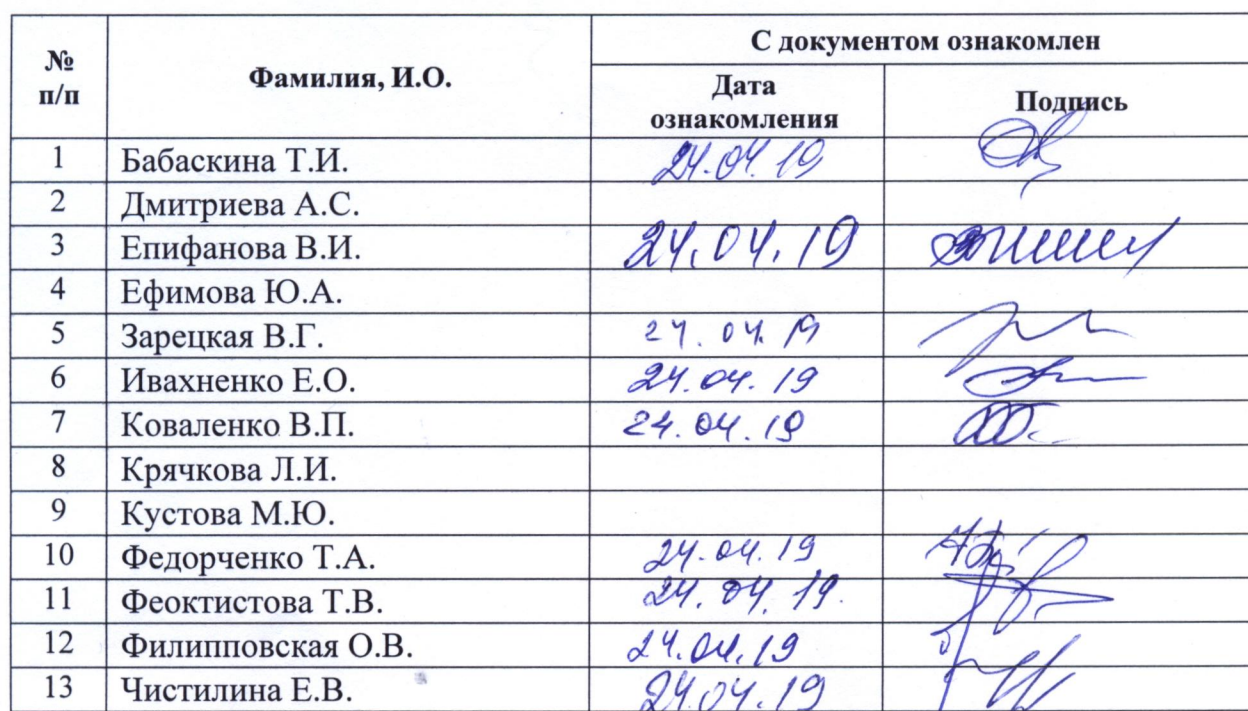 № п/п Фамилия, И.О. С документом ознакомлен
Дата ознакомления Подпись
1 Бабаскина Т.И. 24.04.19
2 Дмитриева А.С.
3 Епифанова В.И. 24.04.19
4 Ефимова Ю.А.
5 Зарецкая В.Г. 24.04.19
6 Ивахненко Е.О. 24.04.19
7 Коваленко В.П. 24.04.19
8 Крячкова Л.И.
9 Кустова М.Ю.
10 Федорченко Т.А. 24.04.19
11 Феоктистова Т.В. 24.04.19.
12 Филипповская О.В. 24.04.19
13 Чистилина Е.В. 24.04.19